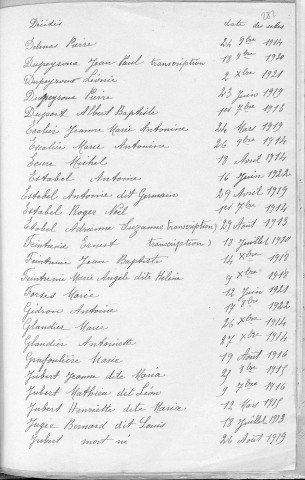 282
Décédés date des actes
Delmas Pierre 24 9bre 1914
Dupeyrona Jean Paul transcription 18 9bre 1920
Dupeyroux Léonie 2 Xbre 1921
Dupeyrona Pierre 23 Juin 1919
Dupont Albert Baptiste 1er 7bre 1913
Escalier Jeanne Marie Antonine 24 Mars 1919
Escalier Marie Antonine 26 9bre 1914
Eeure Michel 18 Avril 1914
Estabel Antoine 16 Juin 1922
Estabel Antoine dit Germain 29 Avril 1919
Estabel Roger Noël 1er 7bre 1914
Estabel Adrienne Suzanne (transcription) 29 Août 1913
Feintrenie Ernest transcription) 13 Juillet 1920
Feintrenie Jean Baptiste 14 Xbre 1918
Feintrenie Marie Angèle dite Hélène 9 Xbre 1918
Forses Marie 12 Juin 1921
Gidron Antoine 17 8bre 1922
Glandier Marie 26 Xbre 1914
Glandier Antoinette 27 Xbre 1914
Grafoulière Marie 19 Août 1916
Jubert Jeanne dite Maria 21 8bre 1915
Jubert Mathieu dit Léon 9 7bre 1916
Jubert Henriette dite Maria 12 Mars 1915
Jugie Bernard dit Louis 18 Juillet 1913
Jubert mort né 26 Août 1919